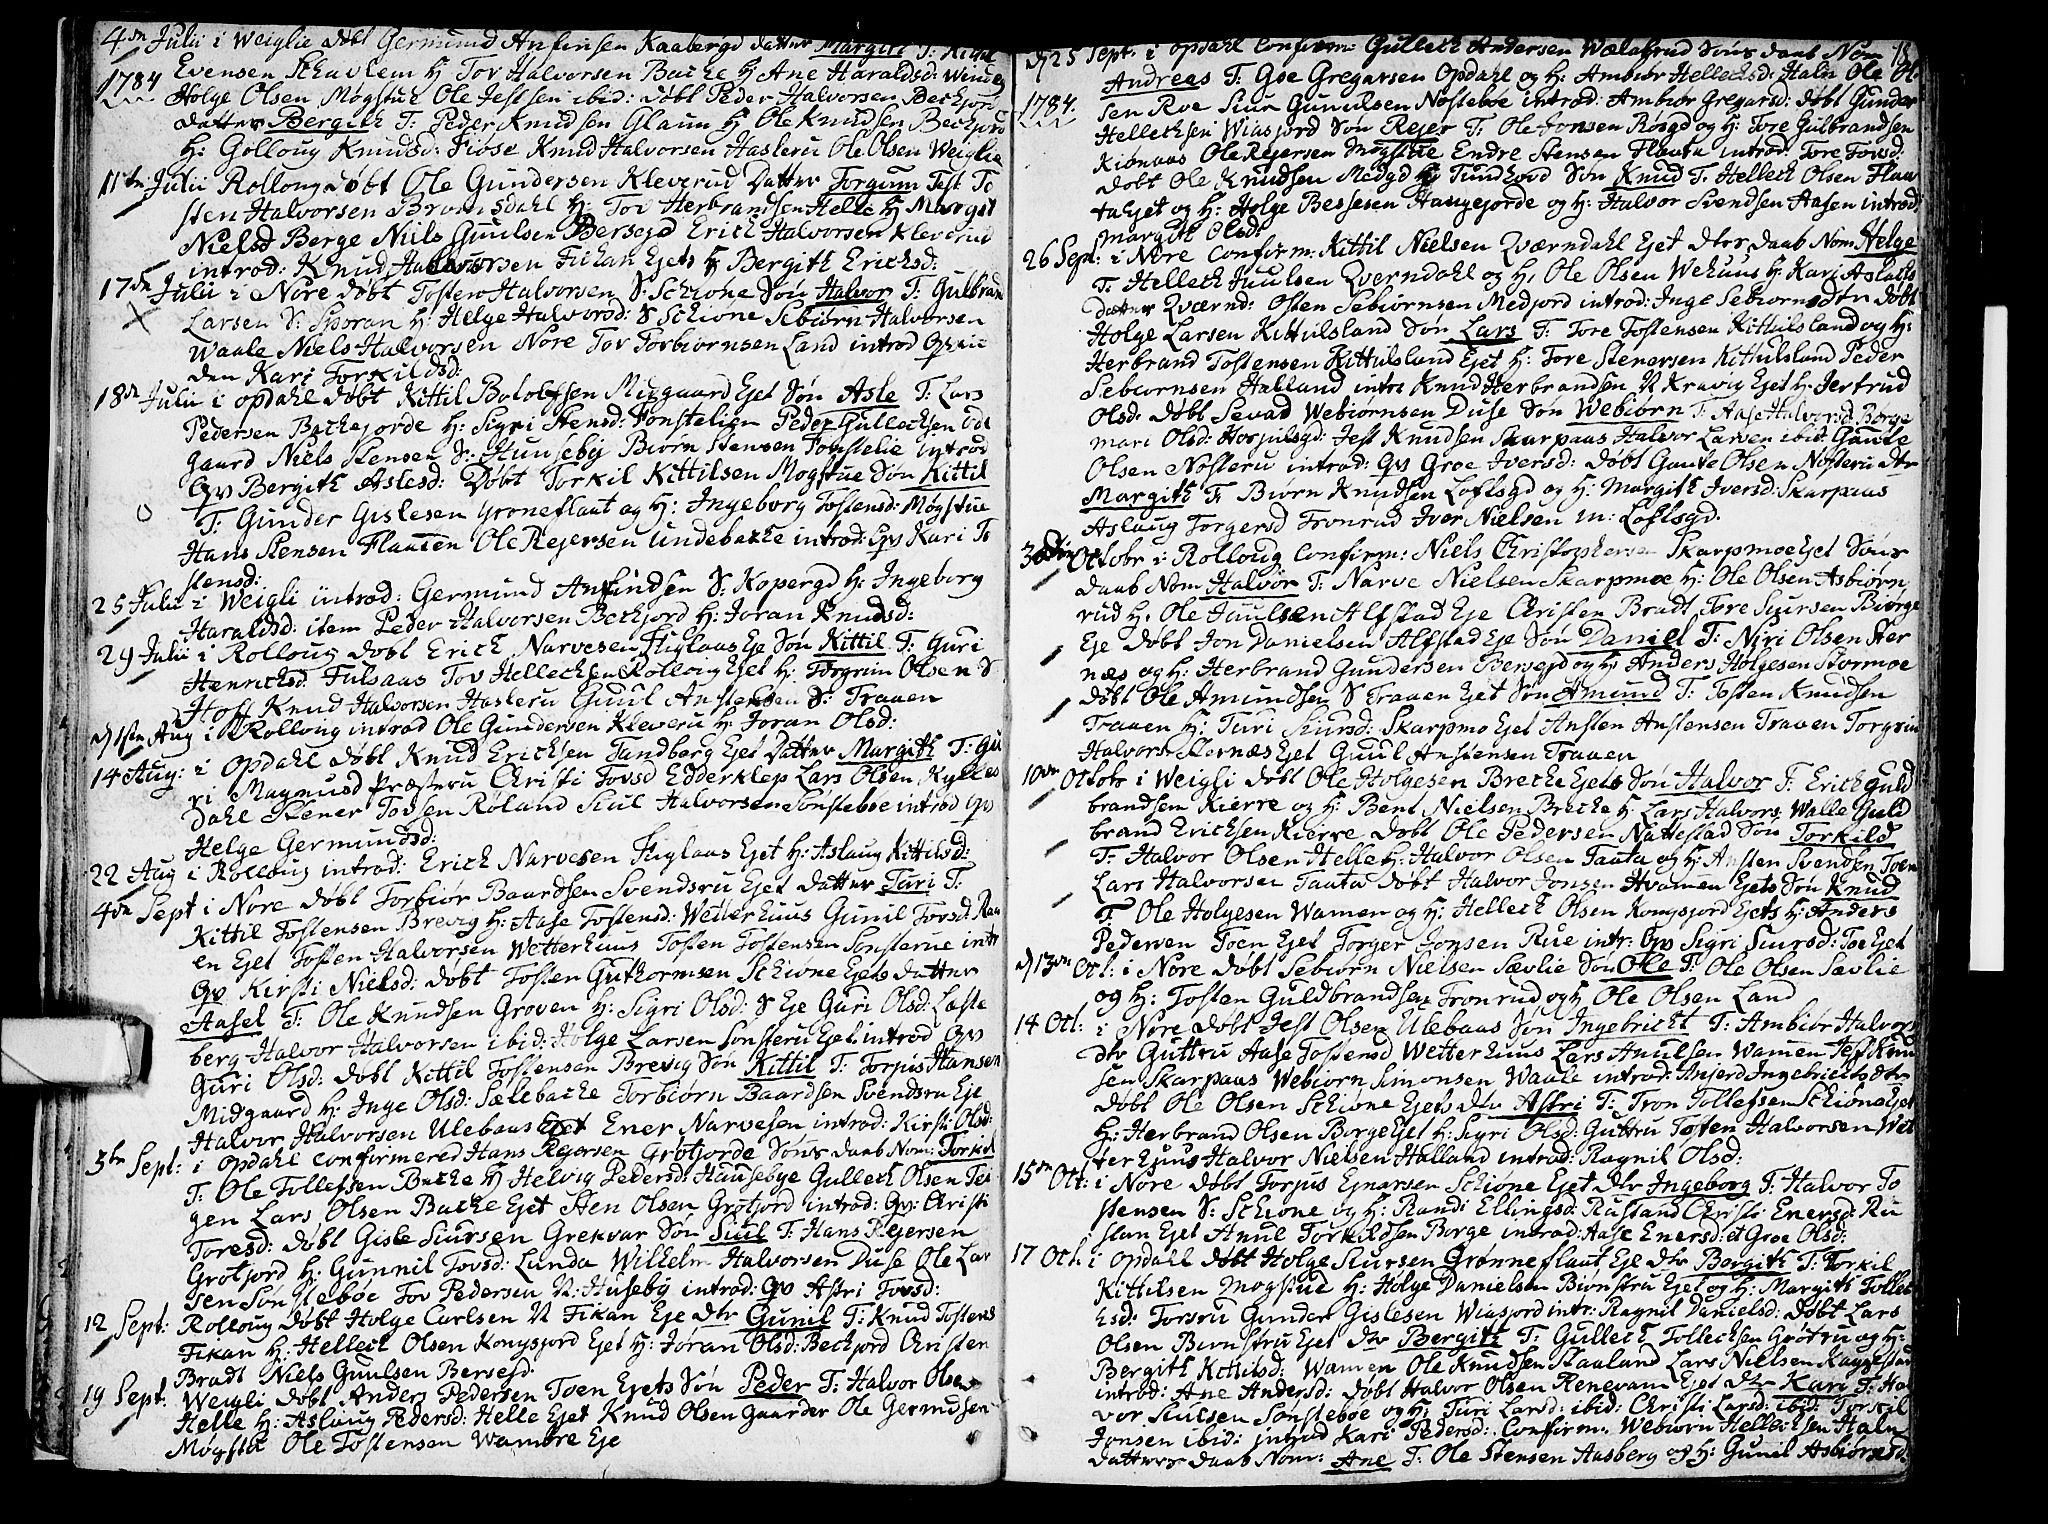 4de Julii i Weiglie døbt Germund Anfinsen Kaabergd datter Margith T: Kittil
1784 Evensen Schavlem H Tov Halvorsen Bache H Ane Haraldsd: Weineg
Holge Olsen Møgstuh Ole Jestsen ibid: døbt Peder Halvorsen Beckjord
datter Bergith T: Peder Knudsen Glaim H Ole Knudsen Beckjord
H: Gollaug Knudsd: Fiose Knud Halvorsen Hasleru Ole Olsen Weiglie
11te Julii Rolloug døbt Ole Gundersen Kleverud Datter Torgum Test To
sten Halvorsen Bromsdahl H: Tov Herbrandsen Helle H Margit
Nielsd Berge Niels Guulsen Bersejd Erich Halvorsen Kleverud
introd: Knud Halvorsen Fickan Ejets H Bergith Erichsd:
17de Julii i Nore døbt Tosten Halvorsen S: Schione Søn Halvor T: Gulbrand
Larsen S: Sporan H: Helge Halvorsd: S Schione Sebiørn Halvorsen
Waale Niels Halvorsen Nore Tov Torbiørnsen Land introd Qvin
den Kari Torkildsd:
18de Julii i opdahl døbt Kittil Bololfsen Mizgaard Ejet Søn Asle T: Lars
Pedersen Bachejorde H: Sigri Stensd: Fonstelien Peder Gullechsen Ode
gaard Niels Stensen Sr: Huuseby Biørn Stensen Fonstelie introd
Qv Bergith Aslesd: Døbt Torkil Kittilsen Mogstue Søn Kittil
T: Gunder Gislesen Groneflaut og H: Ingeborg Tostensd: Møgstue
Hans Stensen Flaaten Ole Rejersen Undebacke introd: Qv Kari To
stensd:
25 Julii i Weigli introd: Germund Anfindsen S: Kopergd H: Ingeborg
Haraldsd: item Peder Halvorsen Beckjord H: Joran Knudsd:
29 Julii i Rolloug døbt Erich Narvesen Fiiglaas Eje Søn Kittil T: Guri
Henrichsd: Fulsaas Tov Hellechsen Rolloug Ejet H: Torgrim Olsen S
Hoff Knud Halvorsen Hasleru Guul Anstensen S: Traaen
d 1ste Aug i Rolloug introd Ole Gundersen Kleveru H: Joran Olsd:
14 Aug: i Opdahl døbt Knud Erichsen Tandberg Ejet Datter Margith T: Gu
ri Magnusd Præsteru Christi Tovsd Edderklep Lars Olsen Kykkes
dahl Stener Tovsen Roland Siul Halvorsen Sonsteboe introd Qv
Helge Germundsd:
22 Aug i Rolloug introd: Erich Narvesen Fiiglaas Ejet H: Aslaug Kittilsd:
4de Sept i Nore døbt Torbiør Baardsen Svendsru Ejet datter Turi T:
Kittil Tostensen Brevig H: Aase Tostensd: Wetterhuus Gunil Torsd: Raa
en Ejet Tosten Halvorsen Wetterhuus Tosten Tostensen Sonsterue intr
Qv Kirsti Nielsd: døbt Tosten Guthormsen Schione Ejets datter
Aasel T: Ole Knudsen Groven H: Sigri Olsd: S Eje Guri Olsd: Laste
berg Halvor Halvorsen ibid: Holge Larsen Sonsteru Ejet introd Qv
Guri Olsd: døbt Kittil Tostensen Brevig Søn Kittil T: Torjus Hansen
Midgaard H: Inge Olsd: Sælebacke Torbiørn Baardsen Svendsru Eje
Halvor Halvorsen Ulebaas Ejet Ener Narvesen introd: Kirsti Olsd
5te Sept: i opdahl confirmered Hans Rejersen Grøtjorde Søns daab Nom: Torkil
T: Ole Tollefsen Bache H Helvig Pedersd: Hausebye Gullech Olsen Tei
gen Lars Olsen Bache Ejet Sten Olsen Grøtjord introd: Qv: Christi
Toresd: døbt Gisle Siursen Grekvar Søn Siul T: Hans Rejersen
Grøtjord H: Gunnil Tovsd: Lunda Wilhelm Halvorsen Duse Ole Lar
sen Sonsteboe Tov Pedersen N: Huseby introd: Qv Astri Tovsd:
12 Sept: Rolloug døbt Holge Carlsen N Fikan Eje dtr Gunil T: Knud Tostens
Fikan H: Hellech Olsen Kongsjord Ejet H: Jøran Olsd: Beckjord Christen
Bradt Niels Guulsen Bersejd
19 Sept. Weigli døbt Anders Pedersen Toen Ejets Søn Peder T: Halvor Olsen
Helle H: Aslaug Pedersd: Helle Ejet Knud Olsen Gaarder Ole Germundsen
Møgstue Ole Tostensen Wambre Eje
d 25 Sept: i opdahl confirm: Gullech Andersen Wælasrud Søns daab Nom 18
Andreas T: Goe Gregarsen Opdahl og H: Ambiør Hellechsd: Halm Ole Ol
1784. sen Roe Siur Gunulsen Nosteboe introd: Ambiør Gregarsd: døbt Gunder
Hellechsen Wiasjord Søn Rejer T: Ole Jonsen Røsgd og H: Tore Gulbrandsen
Kiønaas Ole Rejersen Mogstue Endre Stensen Flaata introd: Tore Tovsd:
døbt Ole Knudsen Medgd H Tundhovd Søn Knud T: Hellech Olsen Flaa
ta Ejet og H: Holge Bessesen Haugejorde og H: Halvor Svendsen Aasen introd
Margith Olsd:
26 Sept: i Nore Confirm: Kittil Nielsen Qværndahl Ejet dtr daab Nom: Helge
T: Hellech Juulsen Qverndahl og H, Ole Olsen Wehuus H: Kari Aslachs
datter Qværnd: Osten Sebiørnsen Medjord introd: Inge Sebiornsdtr døbt
Holge Larsen Kittulsland Søn Lars T: Tore Tostensen Kittulsland og H:
Herbrand Tostensen Kittulsland Ejet H: Tore Stenersen Kittulsland Peder
Sebiørnsen Halland intr: Knud Herbrandsen N Kravig Ejet H: Jertrud
Olsd: døbt Sevad Webiørnsen Duse Søn Webiørn T: Aase Halvorsd: Borge
mari Olsd: Horjulsgd: Jest Knudsen Skarpaas Halvor Larsen ibid: Gaute
Olsen Nosteru introd: Qv Groe Iversd: døbt Gaute Olsen Nosteru dtr
Margith T: Biørn Knudsen Loftsgd og H: Margith Iversd: Skarpaas
Aslaug Torgersd Fronrud Iver Nielsen m: Loftsgd.
3de Octobr i Rolloug confirm: Niels Christophersen Skarpmoe Ejet Søns
daab Nom Halvor T: Narve Nielsen Skarpmoe H: Ole Olsen Asbiørn
rud H, Ole Juulsen Alfstad Eje Christen Bradt Tore Siursen Biørge
Eje døbt Jon Danielsen Alfstad Eje Søn Daniel T: Niri Olsen Ster
næs og H: Herbrand Gundersen Bersejd og H: Anders Holgesen Stormoe
døbt Ole Amundsen S Traaen Ejet Søn Amund T: Tosten Knudsen
Traaen H: Turi Siursd: Skarpmo Ejet Ansten Anstensen Traaen Torgrim
Halvors Sternæs Ejet Guul Anstensen Traaen
10de Octobr i Weigli døbt Ole Holgesen Breche Ejets Søn Halvor T: Erich Guld
brandsen Kierre og H: Bent Nielsen Breche H: Lars Halvors: Walle Guld
brand Erichsen Kierre døbt Ole Pedersen Nattestad Søn Torkild
T: Halvor Olsen Helle H: Halvor Olsen Tauta og H: Ansten Svendsen Toen
Lars Halvorsen Tauta døbt Halvor Jonsen Hvamen Ejets Søn Knud
T: Ole Holgesen Wamen og H: Hellech Olsen Kongsjord Ejets H: Anders
Pedersen Toen Ejet Torger Jonsen Rue intr: Qv Sigri Siursd: Toe Ejet
d 13de Oct: i Nore døbt Sebiørn Nielsen Sævlie Søn Ole T: Ole Olsen Sævlie
og H: Tosten Guldbrandsen Fronrud og H Ole Olsen Land
14 Oct: i Nore døbt Jest Olsen Ulebaas Søn Ingebricht T: Ambiør Halvors
dtr Guttru Aase Tostensd Wetterhuus Lars Anulsen Wamen Jest Knu
sen Skarpaas Webiørn Simonsen Waale introd: Anserd Ingebrictsdtr
døbt Ole Olsen Schione Ejets dtr Astri T: Tron Tollefsen Schione Ejet
H: Herbrand Olsen Borge Ejet H: Sigri Olsd: Guttru Tosten Halvorsen Wet
terhuus Halvor Nielsen Halland introd: Ragnil Olsd:
15de Oct: i Nore døbt Torjus Ejnarsen Schione Ejet dtr Ingeborg T: Halvor To
stensen S: Schione og H: Randi Ellingsd: Rustand Christi Enersd: Ru
stan Ejet Anul Torkildsen Borge introd: Aase Enersd: et Groe Olsd:
17 Oct: i opdahl døbt Holge Siursen Grønneflaut Eje dtr Bergith T: Torkil
Kittilsen Mogstue H: Holge Danielsen Biønstru Ejet og H: Margith Tollek
esd: Torsru Gunder Gislesen Wiasjord intr: Ragnil Danielsd: døbt Lars
Olsen Biønstru Ejet dtr Bergith T: Gullech Tollechsen Grøtru og H:
Bergith Kittilsd: Wamen Ole Knudsen Skaaland Lars Nielsen Kaggestad
introd: Ane Andersd: døbt Halvor Olsen Renevam Ejet dtr Kari T: Hal
vor Siulsen Sønsteboe og H: Turi Larsd: ibid: Christi Larsd: ibid: Torkil
Jonsen ibid: introd Kari Pedersd: Confirm: Webiørn Hellechsen Halm
datters daab Nom: Ane T: Ole Stensen Aasberg og H: Gunil Asbiørnsd: